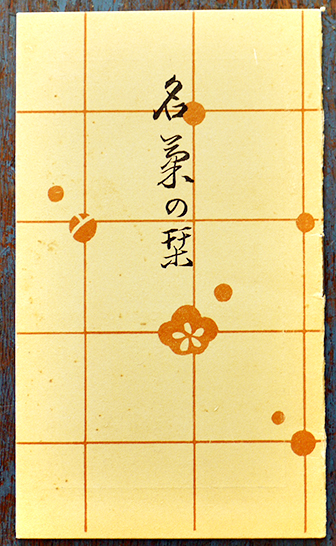 名菓の栞